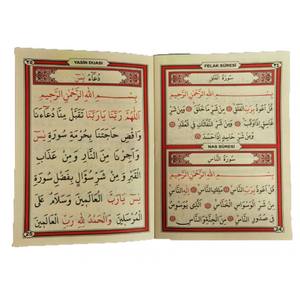 FELAK SÛRESİ
سُورَةُ الْفَلَقِ
بِسْــمِ اللّٰهِ الرَّحْمٰنِ الرَّحِيمِ
قُلْ اَعُوذُ بِرَبِّ الْفَلَقِ ۞ مِنْ شَرِّ مَا خَلَقَ ۞ وَمِنْ شَرِّ
غَاسِقٍ اِذَا وَقَبَ ۞ وَمِنْ شَرِّ النَّفَّاثَاتِ فِي الْعُقَدِ ۞
وَمِنْ شَرِّ حَاسِدٍ اِذَا حَسَدَ ۞
NAS SÛRESİ
سُورَةُ النَّاسِ
بِسْــمِ اللّٰهِ الرَّحْمٰنِ الرَّحِيمِ
قُلْ اَعُوذُ بِرَبِّ النَّاسِ ۞ مَلِكِ النَّاسِ ۞ اِلٰهِ النَّاسِ ۞
مِنْ شَرِّ الْوَسْوَاسِ الْخَنَّاسِ ۞ الَّذِي يُوَسْوِسُ
فِي صُدُورِ النَّاسِ ۞ مِنَ الْجِنَّةِ وَالنَّاسِ ۞
YASİN DUASI
دُعَاءُ يٰسٓ
بِسْــمِ اللّٰهِ الرَّحْمٰنِ الرَّحِيمِ
اَللّٰهُمَّ رَبَّنَا يَارَبَّنَا تَقَبَّلْ مِنَّا دُعَاءَنَا
وَاقْضِ حَاجَتَنَا بِحُرْمَةِ سُورَةِ يٰسٓ
وَاَجِرْنَا مِنَ النَّارِ وَمِنْ عَذَابِ
الْقَبْرِ وَمِنْ شَرِّ سُؤَالٍ بِفَضْلِ سُورَةِ
يٰسٓ يَارَبَّ الْعَالَمِينَ وَسَلَامٌ عَلَى
الْمُرْسَلِينَ وَالْحَمْدُ لِلّٰهِ رَبِّ الْعَالَمِينَ